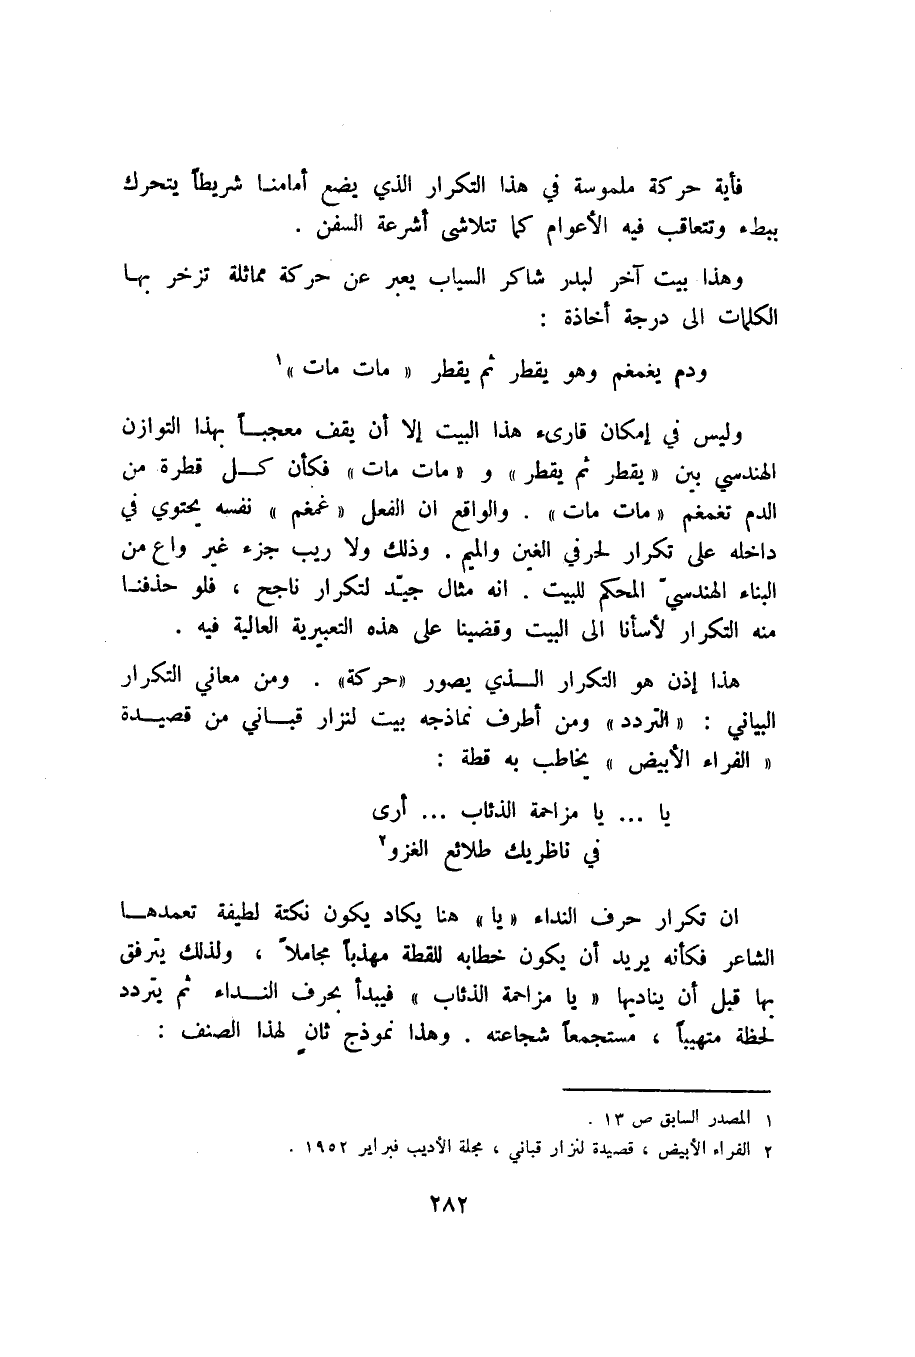 فأية حركة ملموسة في هذا التكرار الذي يضع أمامنا شريطاً يتحرك
ببطء وتتعاقب فيه الأعوام كما تتلاشى أشرعة السفن .
وهذا بيت آخر لبدر شاكر السياب يعبر عن حركة مماثلة تزخر بها
الكلمات الى درجة أخاذة :
ودم يغمغم وهو يقطر ثم يقطر « مات مات »١
وليس في إمكان قارىء هذا البيت إلا أن يقف معجباً بهذا التوازن
الهندسي بين « يقطر ثم يقطر » و « مات مات » فكأن كل قطرة من
الدم تغمغم « مات مات » . والواقع ان الفعل « غمغم » نفسه يحتوي في
داخله على تكرار لحرفي الغين والميم . وذلك ولا ريب جزء غير واع من
البناء الهندسيّ المحكم للبيت . انه مثال جيّد لتكرار ناجح ، فلو حذفنا
منه التكرار لأسأنا الى البيت وقضينا على هذه التعبيرية العالية فيه .
هذا إذن هو التكرار الذي يصور «حركة» . ومن معاني التكرار
البياني : « التردد » ومن أطرف نماذجه بيت لنزار قباني من قصيدة
« الفراء الأبيض » يخاطب به قطة :
يا ... يا مزاحمة الذئاب ... أرى
في ناظريك طلائع الغزو٢
ان تكرار حرف النداء « يا » هنا يكاد يكون نكتة لطيفة تعمدها
الشاعر فكأنه يريد أن يكون خطابه للقطة مهذباً مجاملاً ، ولذلك يترفق
بها قبل أن يناديها « يا مزاحمة الذئاب » فيبدأ بحرف النداء ثم يتردد
لحظة متهيباً ، مستجمعاً شجاعته . وهذا نموذج ثانٍ لهذا الصنف :
١ المصدر السابق ص ١٣ .
٢ الفراء الأبيض ، قصيدة لنزار قباني ، مجلة الأديب فبراير ١٩٥٢ .
٢٨٢